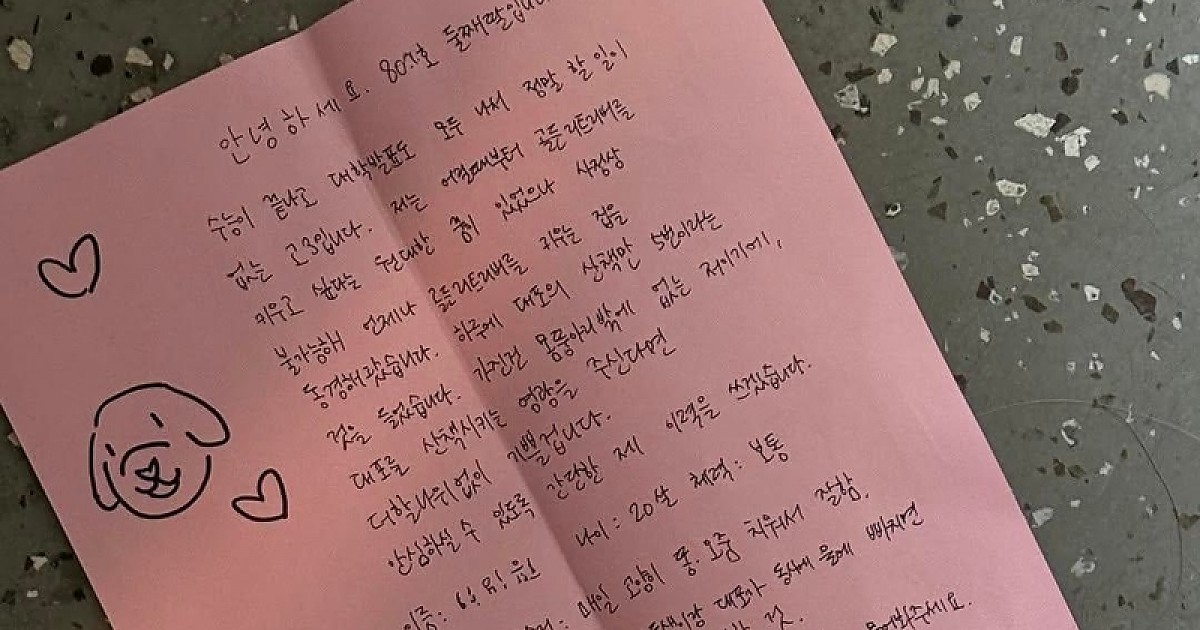 안녕하세요. 807호 둘째딸입니다
수능이 끝나고 대학발표도 모두 나서 정말 할 일이
없는 고3입니다. 저는 어릴때부터 골든리트리버를
키우고 싶다는 원대한 꿈이 있었으나 사정상
불가능해 언제나 골든리트리버를 키우는 집을
동경해왔습니다. 하루에 대포의 산책만 5번이라는
것을 들었습니다. 가진건 몸뚱아리밖에 없는 저이기에,
대포를 산책시키는 영광을 주신다면
더할나위없이 기쁠겁니다.
안심하실 수 있도록 간단한 제 이력을 쓰겠습니다.
이름: 나이: 20살 체력: 보통
매일 고양이 똥.오줌 치워서 잘함.
대포가 동시에 물에 빠지면
것.